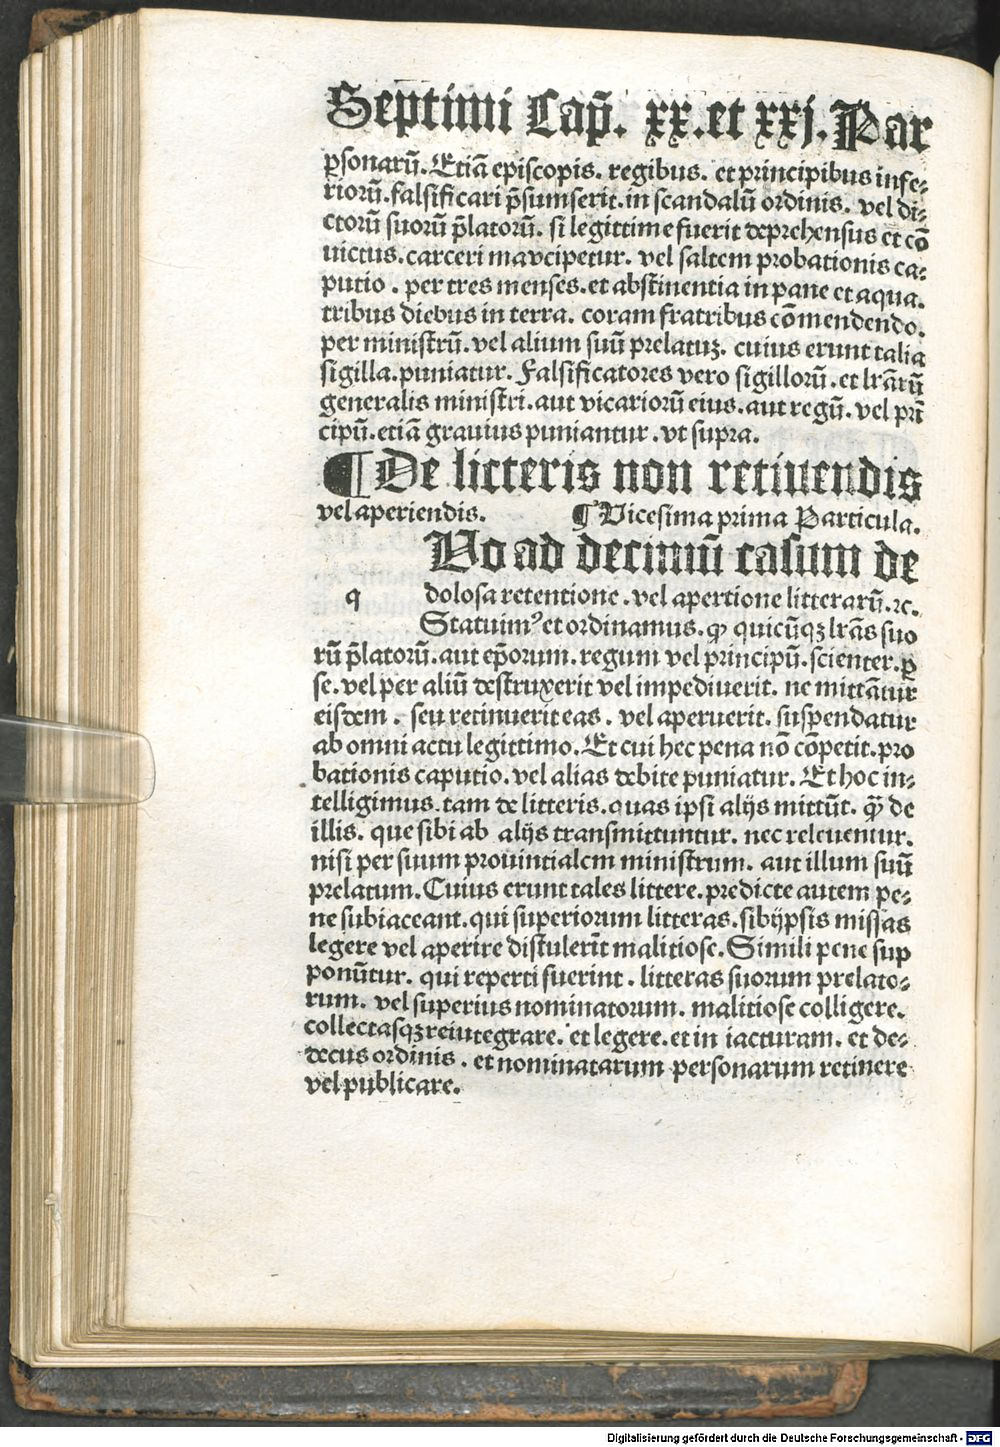 Septimi Cap̃. xx. et xxj. Par
ꝑsonarū. Etiā episcopis. regibus. et principibus infe⸗
riorū. falsificari p̄sumserit. in scandalū ordinis. vel di⸗
ctorū suorū p̄latorū. si legittime fuerit deprehensus et cō
uictus. carceri mavcipetur. vel saltem probationis ca⸗
putio. per tres menses. et abstinentia in pane et aqua.
tribus diebus in terra. coram fratribus cōmendendo.
per ministrū. vel alium suū prelatuꝫ. cuius erunt talia
sigilla. puniatur. Falsificatores vero sigillorū. et lr̄arū
generalis ministri. aut vicariorū eius. aut regū. vel prī
cipū. etiā grauius puniantur. vt supra.
¶ De litteris non retiuendis
vel aperiendis. ¶ Vicesima prima Particula.
q Vo ad decimū casum de
dolosa retentione. vel apertione litterarū. ⁊c.
Statuimꝰ et ordinamus. ꝙ quicūqꝫ lr̄as suo
rū p̄latorū. aut ep̄orum. regum vel principū. scienter. ꝑ
se. vel per aliū destruxerit vel impediuerit. ne mittātur
eisdem. seu retinuerit eas. vel aperuerit. suspendatur
ab omni actu legittimo. Et cui hec pena nō cōpetit. pro
bationis caputio. vel alias debite puniatur. Et hoc in⸗
telligimus. tam de litteris. quas ipsi alijs mittūt. ꝙ̄ de
illis. que sibi ab alijs transmittuntur. nec releuentur.
nisi per suum prouintialem ministrum. aut illum suū
prelatum. Cuius erunt tales littere. predicte autem pe⸗
ne subiaceant. qui superiorum litteras. sibijpsis missas
legere vel aperire distulerīt malitiose. Simili pene sup
ponūtur. qui reperti fuerint. litteras suorum prelato⸗
rum. vel superius nominatorum. malitiose colligere.
collectasqꝫ reiutegrare. et legere. et in iacturam. et de⸗
decus ordinis. et nominatarum personarum retinere
vel publicare.
Digitalisierung gefördert durch die Deutsche Forschungsgemeinschaft - DFG